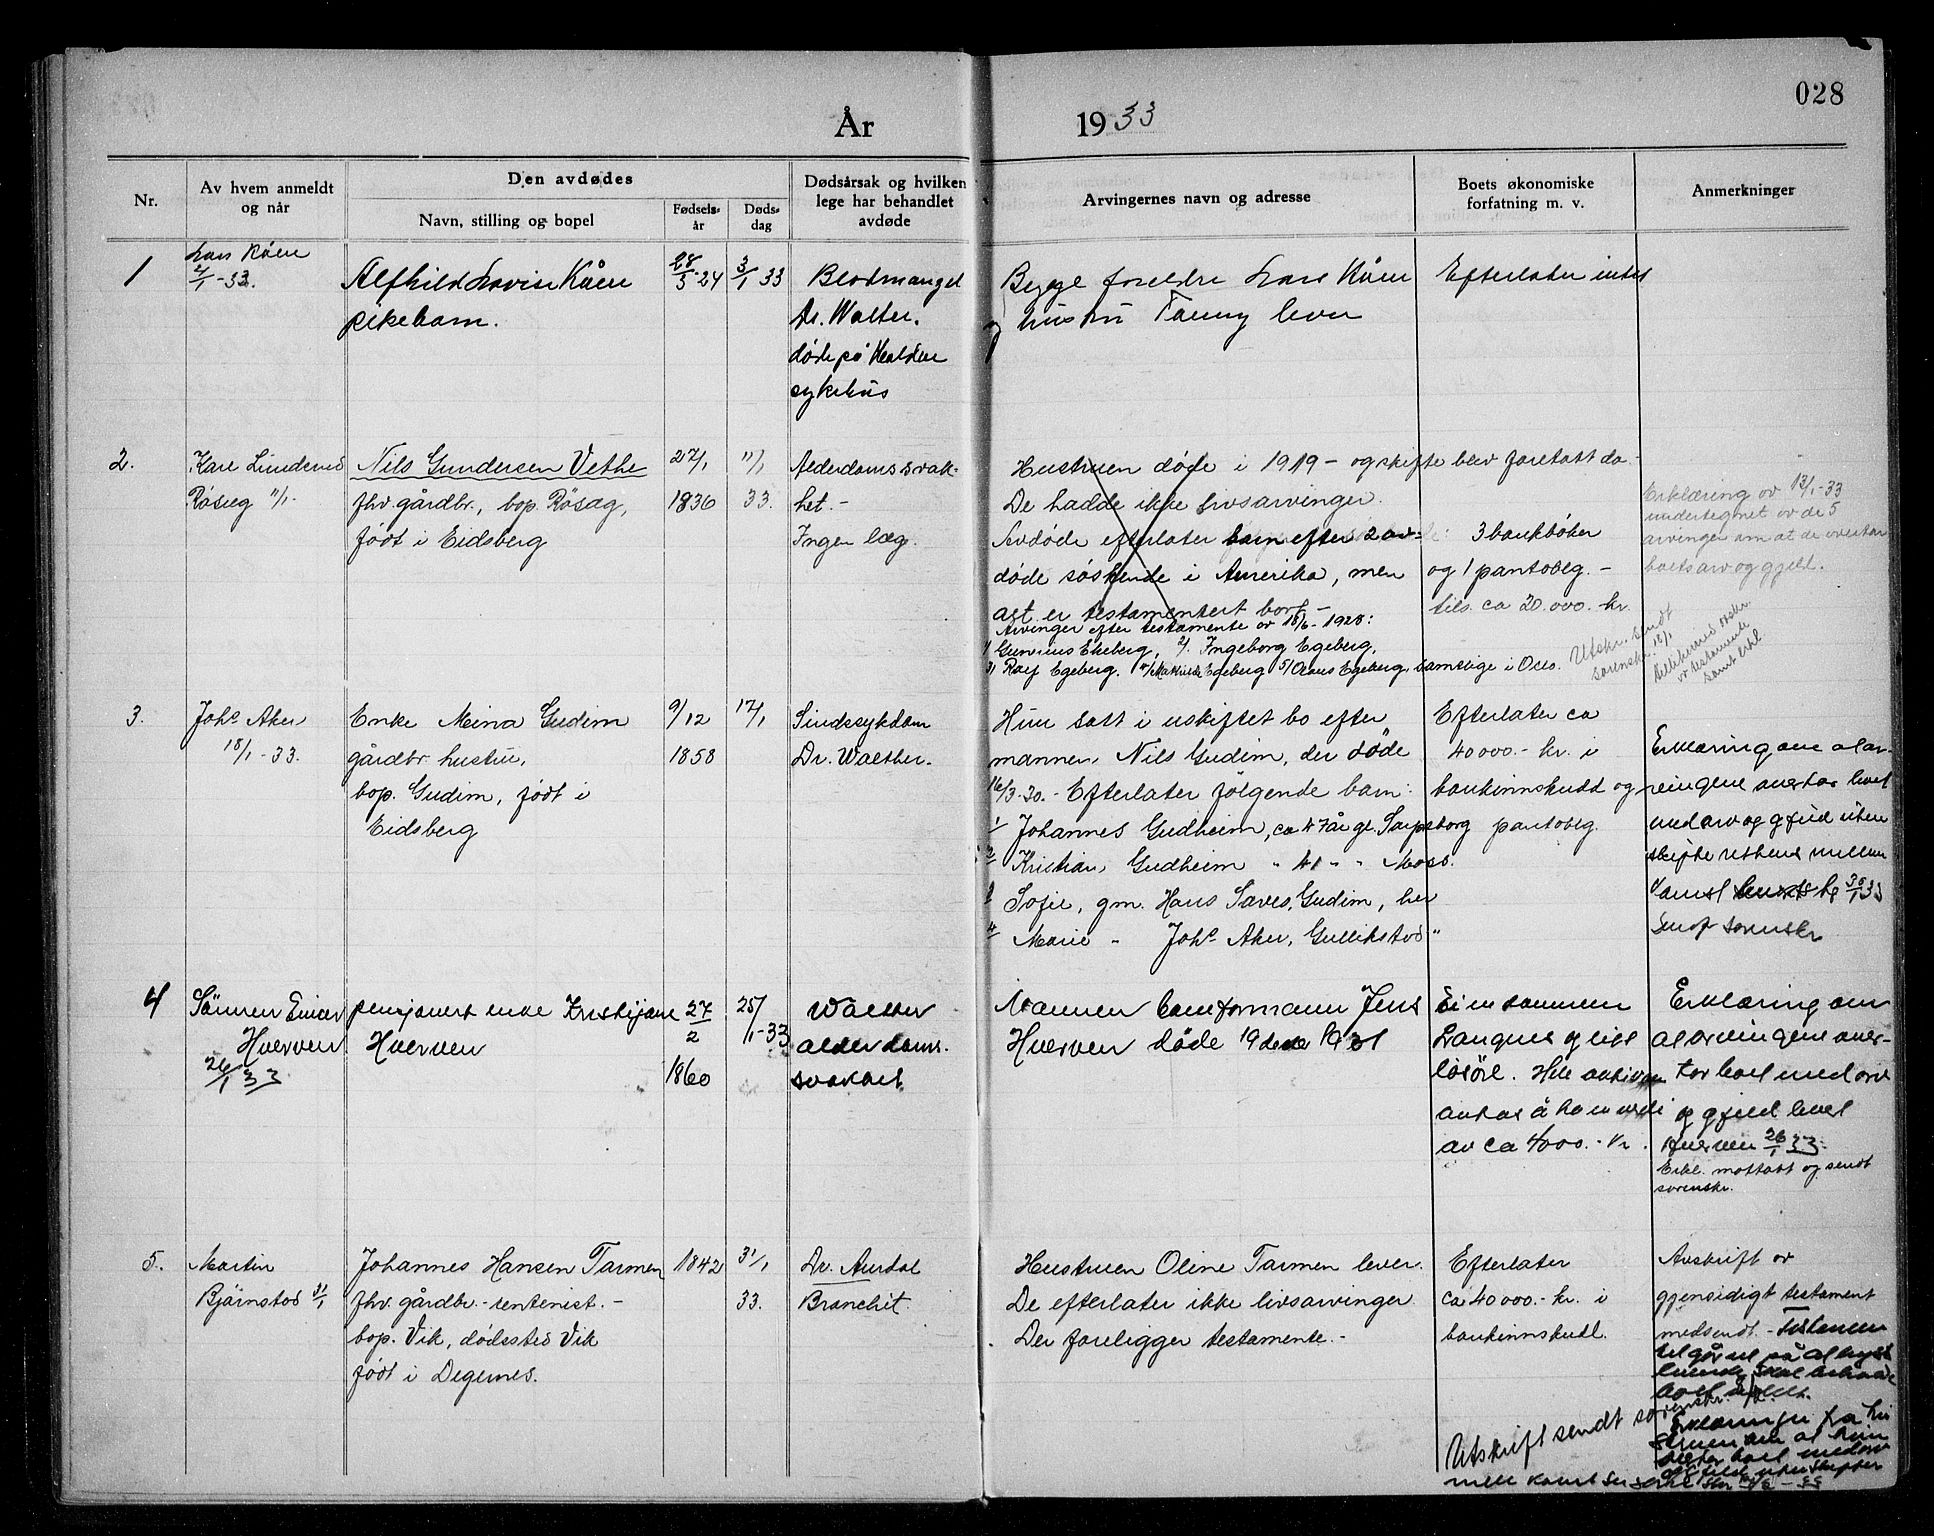 028
År 1933
Nr.
Av hvem anmeldt
og når
Den avdødes
Navn, stilling og bopel
Fødsels-
år
Døds-
dag
Dødsårsak og hvilken
lege har behandlet
avdøde
Arvingernes navn og adresse
Boets økonomiske
forfatning m. v.
Anmerkninger
1
Lars Kåen
4/1-33.
Alfhild Lovise Kåen
pikebarn.
28/5-24
3/1 33
Blodmangel
Dr. Walter.
døde på Halden
sykehus
Begge foreldre Lars Kåen
og hustru Fanny lever
Efterlater intet
2.
Kare Lundened
Röseg 11/1.
Nils Gundersen Vethe
fhv. gårdbr., bop. Röseg,
født i Eidsberg
27/1
1836
11/1
33.
Alderdomssvak-
het. -
Ingen læg.
Hustruen døde i 1919 - og skifte blev foretatt da.
De hadde ikke livsarvinger.
Avdøde efterlater barn efter 2 av-
døde søskende i Amerika, men
alt er testamentert bort -
Arvinger efter testamente av 18/6-1928:
1/ Gunerius Ekeberg, 2/ Ingeborg Egeberg,
3/ Ralf Egeberg. 4/ Mathilde Egeberg 5/ Olaus Egeberg, samtlige i Oslo.
3 bankbøker
og 1 pantoblg. -
tils. ca 20.000. kr.
Erklæring av 13/1-33
undertegnet av de 5
arvinger om at de overtar
boets arv og gjeld.
Utskr. sendt
sorenskr. 12/1
3.
Johs Aker
18/1-33.
Enke Meina Gudim
gårdbr. hustru,
bop. Gudim, født i
Eidsberg
9/12
1858
17/1
Sindssykdom
Dr. Walther.
Hun satt i uskiftet bo efter
mannen, Nils Gudim, der døde
16/3-30. - Efterlater følgende barn:
1/ Johannes Gudheim, ca 47 år gl. Sarpsborg
2/ Kristian, Gudheim " 41 " " Moss.
3/ Sofie, gm. Hans Sæves, Gudim, her
4/ Marie " Johs Aker, Gullikstad "
Efterlater ca
40000.- kr. i
bankinnskudd og
pantoblg.
Erklæring om at ar-
vingene overtar boet
med arv og gjeld uten
skifterettens mellem
30/1 33
sorenskr
4
Sønnen Einar
Huerven
26/1 33
pensjonert enke Kristijane
Huerven
27/2
1860
25/1-33
Walter
alderdoms.
svakhet
Mannen baneformann Jens
Huerven døde
Ei im sammen
og litt
løsøre. Hele
antas å ha en verdi
av ca 4000.- kr.
Erklæring om
at arvingene over-
tar boet med arv
og gjeld levert
Huerven 26/1 33.
Erkl. mottatt og sendt
sorenskr.
5.
Martin
Bjørnstad 31/1
Johannes Hansen Tarmen
fhv. gårdbr. - rentenist. -
bop. Vik, dødssted Vik
født i Degernes.
1842
31/1
33.
Dr. Aurdal
Bronchit.
Hustruen Oline Tarmen lever.
De efterlater ikke livsarvinger
Der foreligger testamente. -
Efterlater
ca 40000.- kr. i
bankinnskudd.
Avskrift av
gjensidigt testament
medsendt -
Utskrift sendt sorenskr.
Erklæring fra hu
struen om at hun